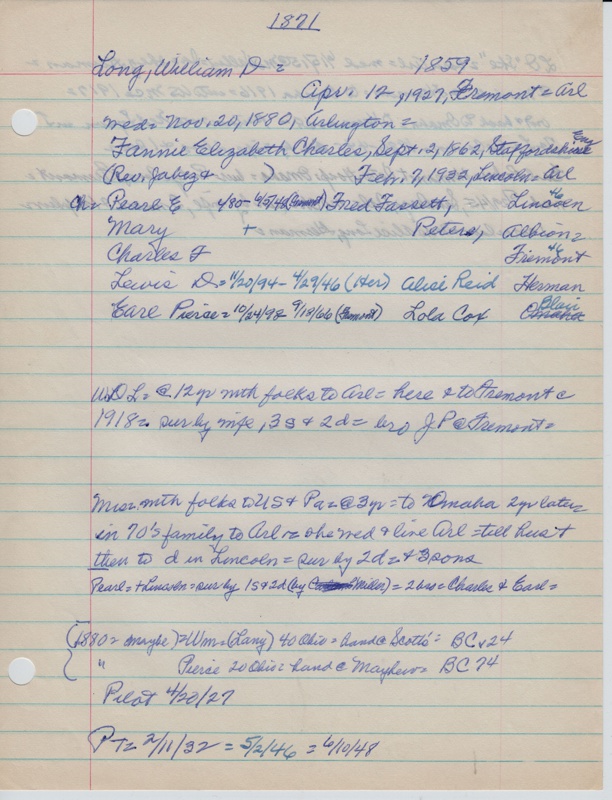 1871
Long, William D = 1859 =
Apr. 12, 1927, Fremont = Arl
med = Nov. 20, 1880, Arlington =
Eng
Fannie Elizabeth Charles, Sept. 2, 1862, Staffordshire
Rev. Jabez & ) Feb. 7, 1932, Lincoln = Arl
Ch = Pearl E (Fremont) Fred Fassett, Lincoln 46
Mary + Peters, Albion =
Charles F Fremont 46
Lewis D. = 11/20/94 - 4/29/46 (Her) Alice Reid Herman
Earl Pierce = 10/24/98 9/18/66 (Fremont) Lola Cox Omaha Blair
W.D L = @ 12 yr mth folks to Arl = here & to Fremont c
1918 = sur by wife, 3 s & 2 d = bro J P @ Fremont =
Miss. mth folks to US & Pa = @ 3 yr = to Omaha 2 yr later
in 70's family to Arl = she wed & live Arl = till hus +
then to d in Lincoln = sur by 2 d = & 3 sons
Pearl = + Lincoln = sur by 1 s & 2 d (by Miller) = 2 bro = Charles & Earl =
(1880 = maybe) = Wm = (Lang) 40 Ohio = hand c Scotts' = BC x 24
" Pierce 20 Ohio = hand c Mayhew = BC 74
Pilot 4/20/27
PT = 2/11/32 = 5/2/46 = 6/10/48